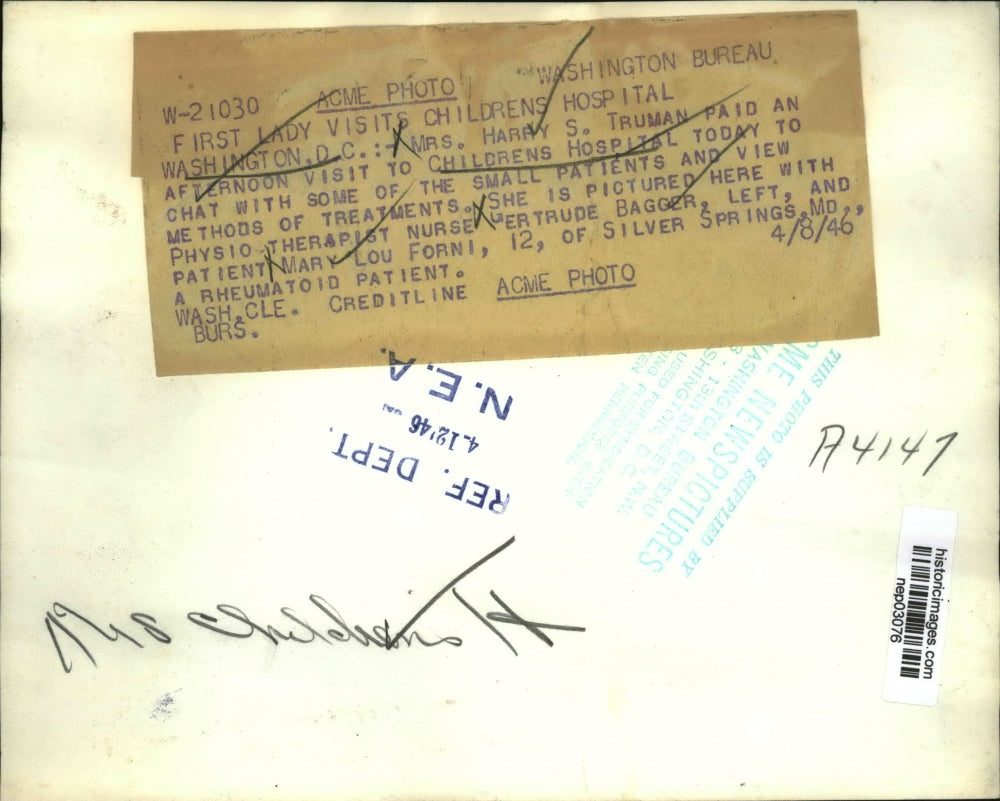 W-21030 ACME PHOTO WASHINGTON BUREAU
FIRST LADY VISITS CHILDRENS HOSPITAL
WASHINGTON, D.C.:- MRS. HARRY S. TRUMAN PAID AN
AFTERNOON VISIT TO CHILDRENS HOSPITAL TODAY TO
CHAT WITH SOME OF THE SMALL PATIENTS AND VIEW
METHODS OF TREATMENTS. SHE IS PICTURED HERE WITH
PHYSIO THERAPIST NURSE GERTRUDE BAGGER, LEFT, AND
PATIENT MARY LOU FORNI, 12, OF SILVER SPRINGS, MD,,
A RHEUMATOID PATIENT. 4/8/46
WASH, CLE. CREDITLINE ACME PHOTO
BURS.
REF. DEPT.
4-12'46
N.E.A.
THIS PHOTO IS SUPPLIED BY
NEWSPICTURES
WASHINGTON BUREAU
13th STREET, N.W.
WASHINGTON, D.C.
USED FOR SYNDICATION
PURPOSES WITH
PERMISSION.
A4147
historicimages.com
nep03076
Childrens H